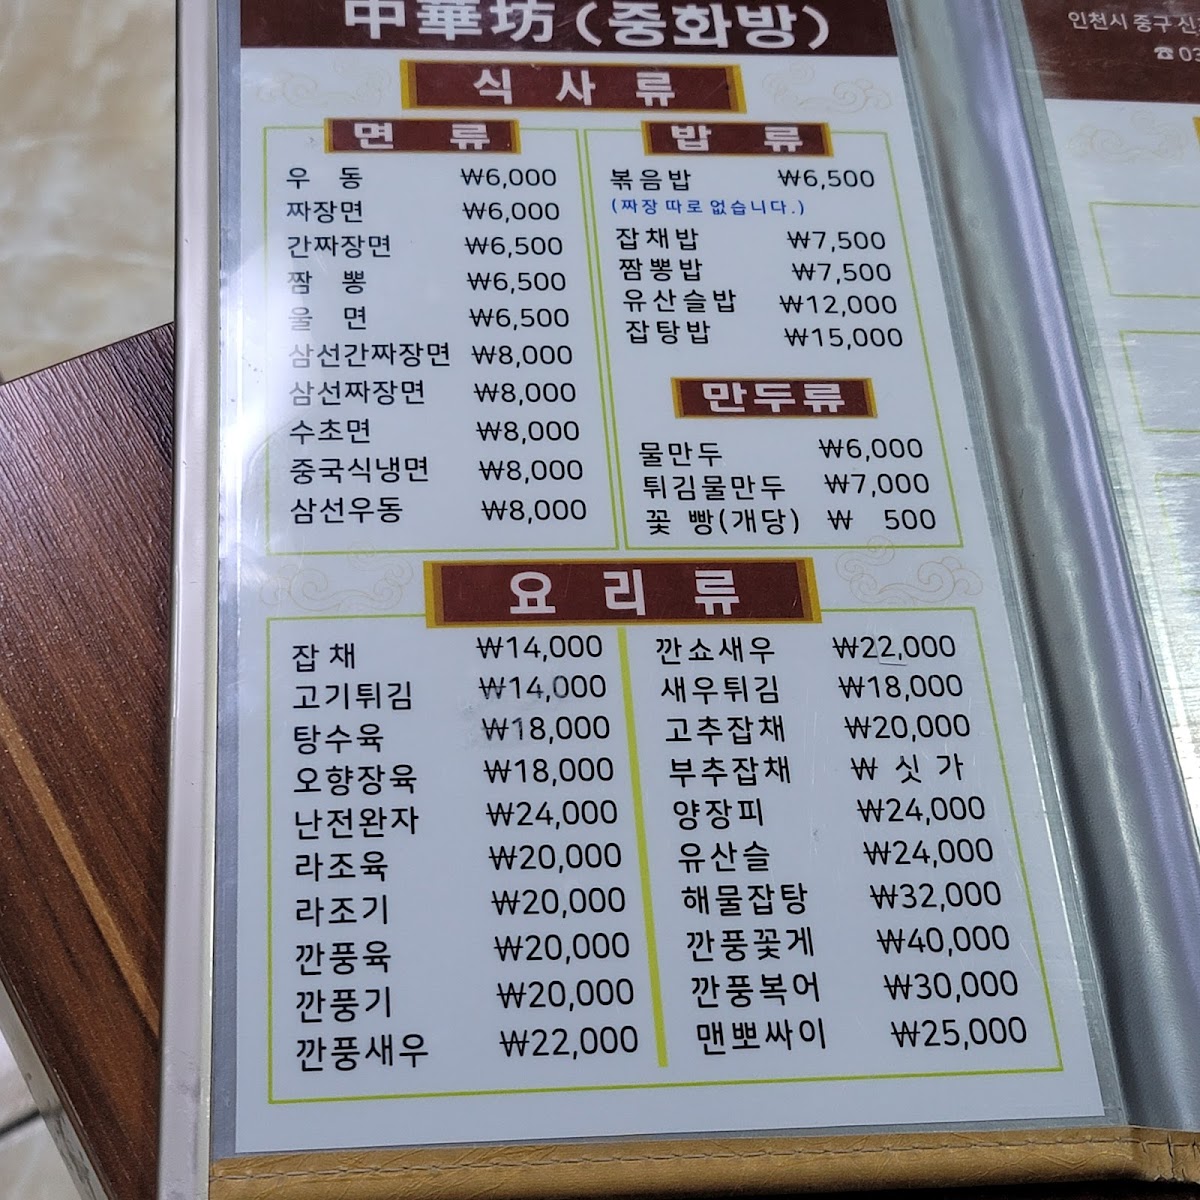 中華坊(중화방)
식 사 류
면 류
우 동 ₩6,000
짜장면 ₩6,000
간짜장면 ₩6,500
짬 뽕 ₩6,500
울 면 ₩6,500
삼선간짜장면 ₩8,000
삼선짜장면 ₩8,000
수초면 ₩8,000
중국식냉면 ₩8,000
삼선우동 ₩8,000
밥 류
볶음밥 ₩6,500
(짜장 따로 없습니다.)
잡채밥 ₩7,500
짬뽕밥 ₩7,500
유산슬밥 ₩12,000
잡탕밥 ₩15,000
만두류
물만두 ₩6,000
튀김물만두 ₩7,000
꽃 빵(개당) ₩ 500
요 리 류
잡채 ₩14,000
고기튀김 ₩14,000
탕수육 ₩18,000
오향장육 ₩18,000
난전완자 ₩24,000
라조육 ₩20,000
라조기 ₩20,000
깐풍육 ₩20,000
깐풍기 ₩20,000
깐풍새우 ₩22,000
깐쇼새우 ₩22,000
새우튀김 ₩18,000
고추잡채 ₩20,000
부추잡채 ₩ 싯 가
양장피 ₩24,000
유산슬 ₩24,000
해물잡탕 ₩32,000
깐풍꽃게 ₩40,000
깐풍복어 ₩30,000
맨뽀싸이 ₩25,000
인천시 중구 신
☎ 03